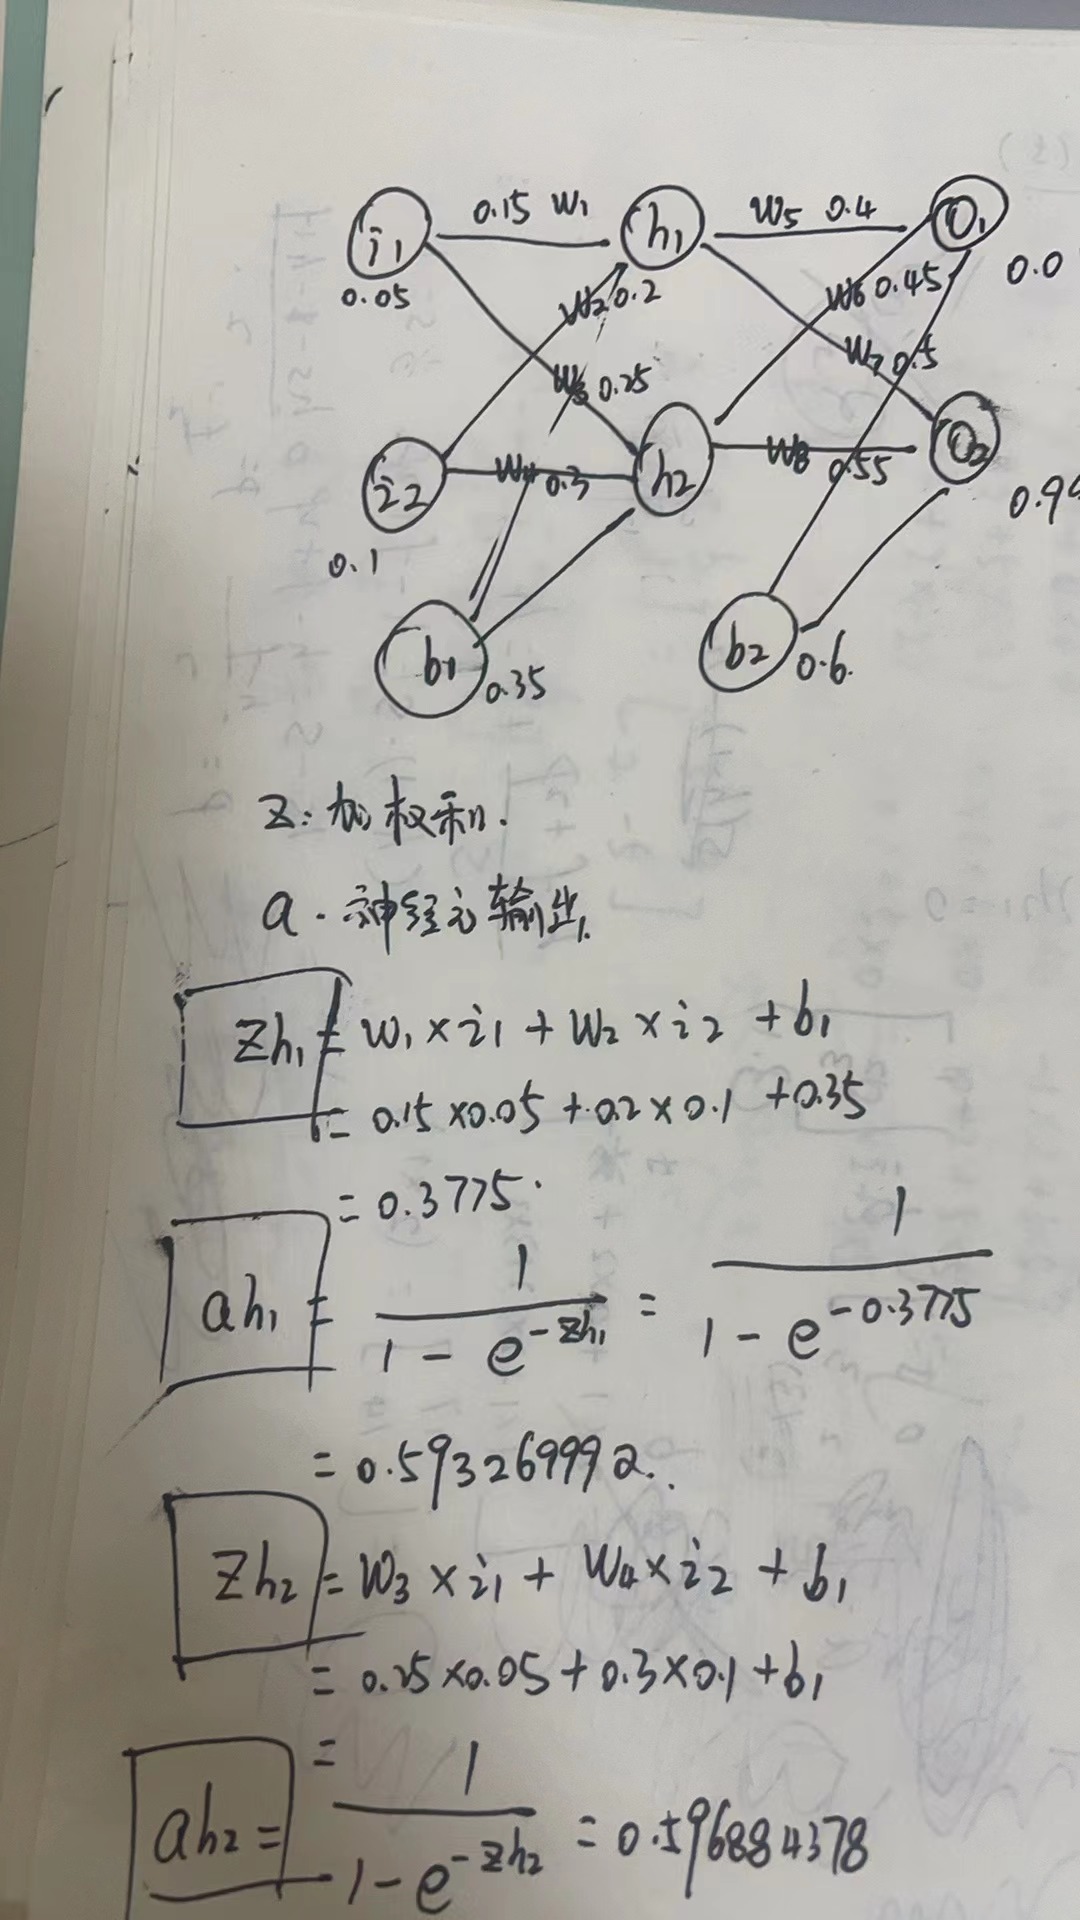 i1 0.15 w1 h1 w5 0.4 O1
0.05 w2 0.2 w6 0.45 0.0
w3 0.25 w7 0.5
i2 w4 0.3 h2 w8 0.55 O2
0.1 0.9
b1 0.35 b2 0.6.
Z: 加权和.
a. 神经元输出.
Zh1 = w1 × i1 + w2 × i2 + b1
= 0.15 × 0.05 + 0.2 × 0.1 + 0.35
= 0.3775.
ah1 = 1/(1 - e^-zh1) = 1/(1 - e^-0.3775)
= 0.593269992.
Zh2 = W3 × i1 + W4 × i2 + b1
= 0.25 × 0.05 + 0.3 × 0.1 + b1
=
ah2 = 1/(1 - e^-zh2) = 0.596884378